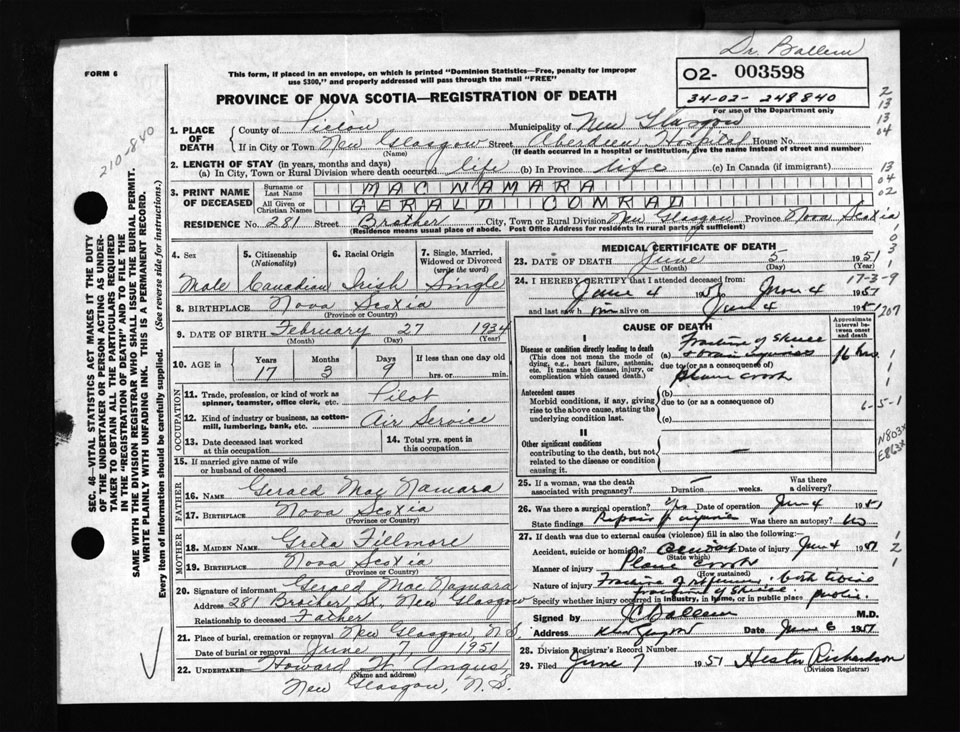 Dr. Ballem
FORM 6
This form, if placed in an envelope, on which is printed "Dominion Statistics—Free, penalty for improper
use $300," and properly addressed will pass through the mail "FREE"
02- 003598
34-02- 248840
For use of the Department only
PROVINCE OF NOVA SCOTIA—REGISTRATION OF DEATH
1. PLACE OF DEATH County of Pictou Municipality of New Glasgow
If in City or Town New Glasgow Street Aberdeen Hospital House No.
(Name) (If death occurred in a hospital or institution, give the name instead of street and number)
2. LENGTH OF STAY (in years, months and days)
(a) In City, Town or Rural Division where death occurred life (b) In Province life (c) In Canada (if immigrant)
3. PRINT NAME OF DECEASED Surname or Last Name MAC NAMARA
All Given or Christian Names GERALD CONRAD
RESIDENCE No. 281 Street Brother City, Town or Rural Division New Glasgow Province Nova Scotia
(Residence means usual place of abode. Post Office Address for residents in rural parts not sufficient)
4. Sex 5. Citizenship (Nationality) 6. Racial Origin 7. Single, Married, Widowed or Divorced (write the word)
Male Canadian Irish Single
8. BIRTHPLACE Nova Scotia
(Province or Country)
9. DATE OF BIRTH February 27 1934
(Month) (Day) (Year)
10. AGE Years Months Days If less than one day old
17 3 9 hrs. or min.
OCCUPATION
11. Trade, profession, or kind of work as spinner, teamster, office clerk, etc. Pilot
12. Kind of industry or business, as cotton-mill, lumbering, bank, etc. Air Service
13. Date deceased last worked at this occupation
14. Total yrs. spent in this occupation
15. If married give name of wife or husband of deceased
FATHER
16. NAME Gerald Mac Namara
17. BIRTHPLACE Nova Scotia
(Province or Country)
MOTHER
18. MAIDEN NAME Greta Fillmore
19. BIRTHPLACE Nova Scotia
(Province or Country)
20. Signature of informant Gerald Mac Namara
Address 281 Brother St., New Glasgow
Relationship to deceased Father
21. Place of burial, cremation or removal New Glasgow, N.S.
Date of burial or removal June 7 1951
22. UNDERTAKER Howard W. Angus
(Name and address)
New Glasgow, N.S.
MEDICAL CERTIFICATE OF DEATH
23. DATE OF DEATH June 5 1951
(Month) (Day) (Year)
24. I HEREBY CERTIFY that I attended deceased from:
June 4 1951 to June 4 1951
and last saw him alive on June 4 1951
17-3-9
207
CAUSE OF DEATH
Approximate interval between onset and death
I
Disease or condition directly leading to death
(This does not mean the mode of dying, e.g., heart failure, asthenia, etc. It means the disease, injury, or complication which caused death.)
(a) Fracture of Skull
& brain injuries 16 hrs
due to (or as a consequence of)
Plane crash
Antecedent causes
Morbid conditions, if any, giving rise to the above cause, stating the underlying condition last.
(b)
due to (or as a consequence of)
(c)
6-5-1
II
Other significant conditions
contributing to the death, but not related to the disease or condition causing it
N803X
E863X
25. If a woman, was the death associated with pregnancy? Duration weeks. Was there a delivery?
26. Was there a surgical operation? Yes Date of operation June 4 1951
State findings Repair of injuries Was there an autopsy? No
27. If death was due to external causes (violence) fill in also the following:—
Accident, suicide or homicide? Accident Date of injury June 4 1951
(State which)
Manner of injury Plane crash
(How sustained)
Nature of injury Fracture of
fracture of skull
Specify whether injury occurred in industry, in home, or in public place public
Signed by J C Ballem M.D.
Address New Glasgow Date June 6 1951
28. Division Registrar's Record Number
29. Filed June 7 1951 Hester Richardson
(Division Registrar)
210-840
SEC. 46—VITAL STATISTICS ACT MAKES IT THE DUTY
OF THE UNDERTAKER OR PERSON ACTING AS UNDER-
TAKER TO OBTAIN ALL THE PARTICULARS REQUIRED
IN THE "REGISTRATION OF DEATH" AND TO FILE THE
SAME WITH THE DIVISION REGISTRAR WHO SHALL ISSUE THE BURIAL PERMIT.
WRITE PLAINLY WITH UNFADING INK. THIS IS A PERMANENT RECORD.
Every item of information should be carefully supplied. (See reverse side for instructions.)
2
13
13
04
13
04
02
1
0
3
1
1
1
1
1
2
1